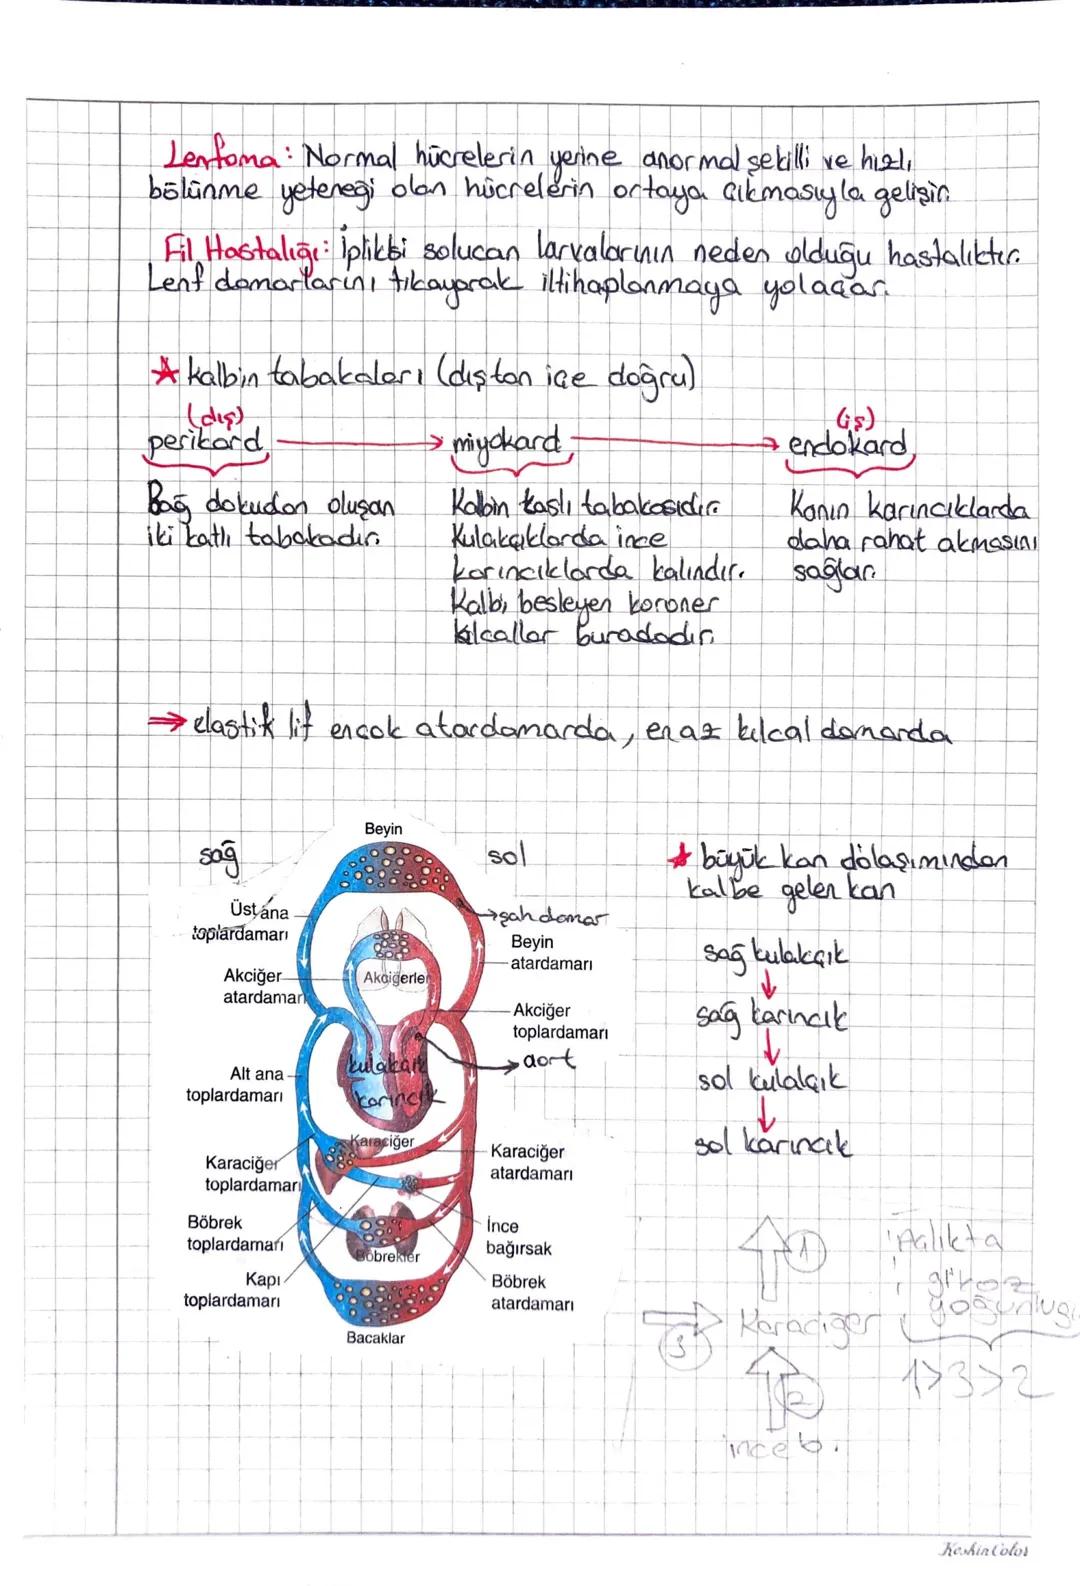 Lenfoma: Normal hücrelerin yerine anormal şekilli ve hızlı
bölünme yeteneği olan hücrelerin ortaya çıkmasıyla gelişir.
Fil Hastalığı: İpliksi solucan larvalarının neden olduğu hastalıktır.
Lenf damarlarını tıkayarak iltihaplanmaya yol açar.
★ kalbin tabakaları (dıştan içe doğru)
(dış) (iç)
perikard → miyokard → endokard
Bağ dokudan oluşan
iki katlı tabakadır.
Kalbin kaslı tabakasıdır.
Kulakçıklarda ince
karıncıklarda kalındır.
Kalbi besleyen koroner
kılcallar buradadır.
Kanın karıncıklarda
daha rahat akmasını
sağlar.
⇒ elastik lif en çok atardamarda, en az kılcal damarda
sağ
Beyin
sol
Üst ana
toplardamarı
Akciğer
atardamarı
Alt ana
toplardamarı
Karaciğer
toplardamarı
Böbrek
toplardamarı
Kapı
toplardamarı
Akciğerler
kulakçık
karıncık
Karaciğer
Böbrekler
Bacaklar
→ şah damar
Beyin
atardamarı
Akciğer
toplardamarı
→ aort
Karaciğer
atardamarı
İnce
bağırsak
Böbrek
atardamarı
★ büyük kan dolaşımından
kalbe gelen kan
sağ kulakçık
↓
sağ karıncık
↓
sol kulakçık
↓
sol karıncık
1
3
Karaciğer
2
ince b.
Açlıkta
glikoz
yoğunluğu
1>3>2
KeskinColor